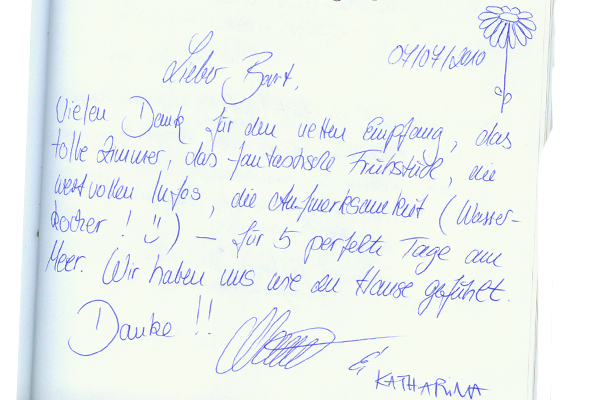 Lieber Bart,
07/07/2010
Vielen Dank für den netten Empfang, das
tolle Zimmer, das fantastische Frühstück, die
wertvollen Infos, die Aufmerksamkeit (Wasser-
kocher! ☺) – für 5 perfekte Tage am
Meer. Wir haben uns wie zu Hause gefühlt.
Danke!!
& KATHARINA